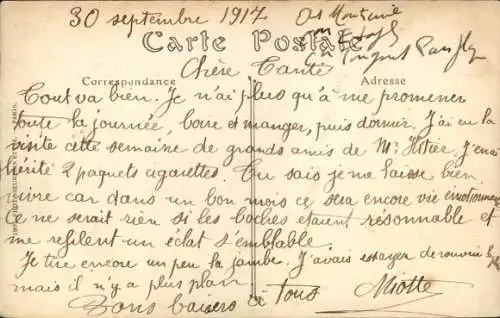 30 septembre 1917
Carte Postale
Correspondance
Adresse
Chère Tante
Tout va bien. Je n'ai plus qu'à me promener
toute la journée, boire et manger, puis dormir. J'ai eu la
visite cette semaine de grands amis de Mr
hérité 2 paquets cigarettes. Tu sais je me laisse bien
vivre car dans un bon mois ce sera encore vie
Ce ne serait rien si les boches etaient résonnable et
me refilent un éclat s'emblable.
Je tire encore un peu la jambe. J'avais essayer de
mais il n'y a plus plan
Bons baisers à tous
Miotte